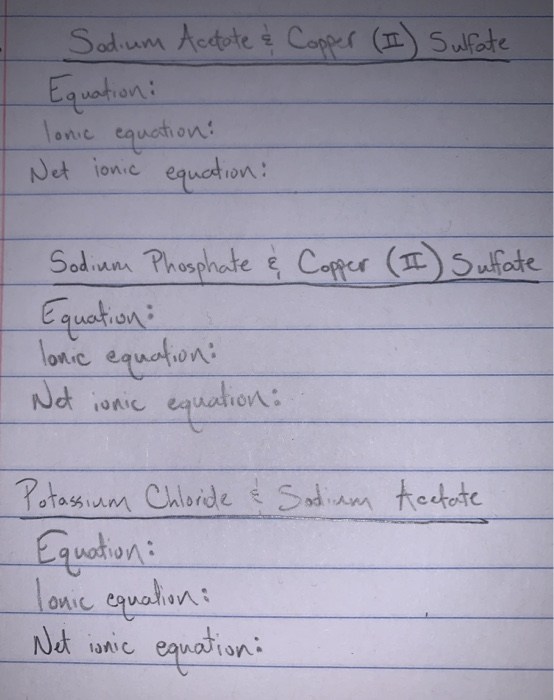 Sodium Acetate & Copper (II) Sulfate
Equation:
Ionic equation:
Net ionic equation:
Sodium Phosphate & Copper (II) Sulfate
Equation:
Ionic equation:
Net ionic equation:
Potassium Chloride & Sodium Acetate
Equation:
Ionic equation:
Net ionic equation: